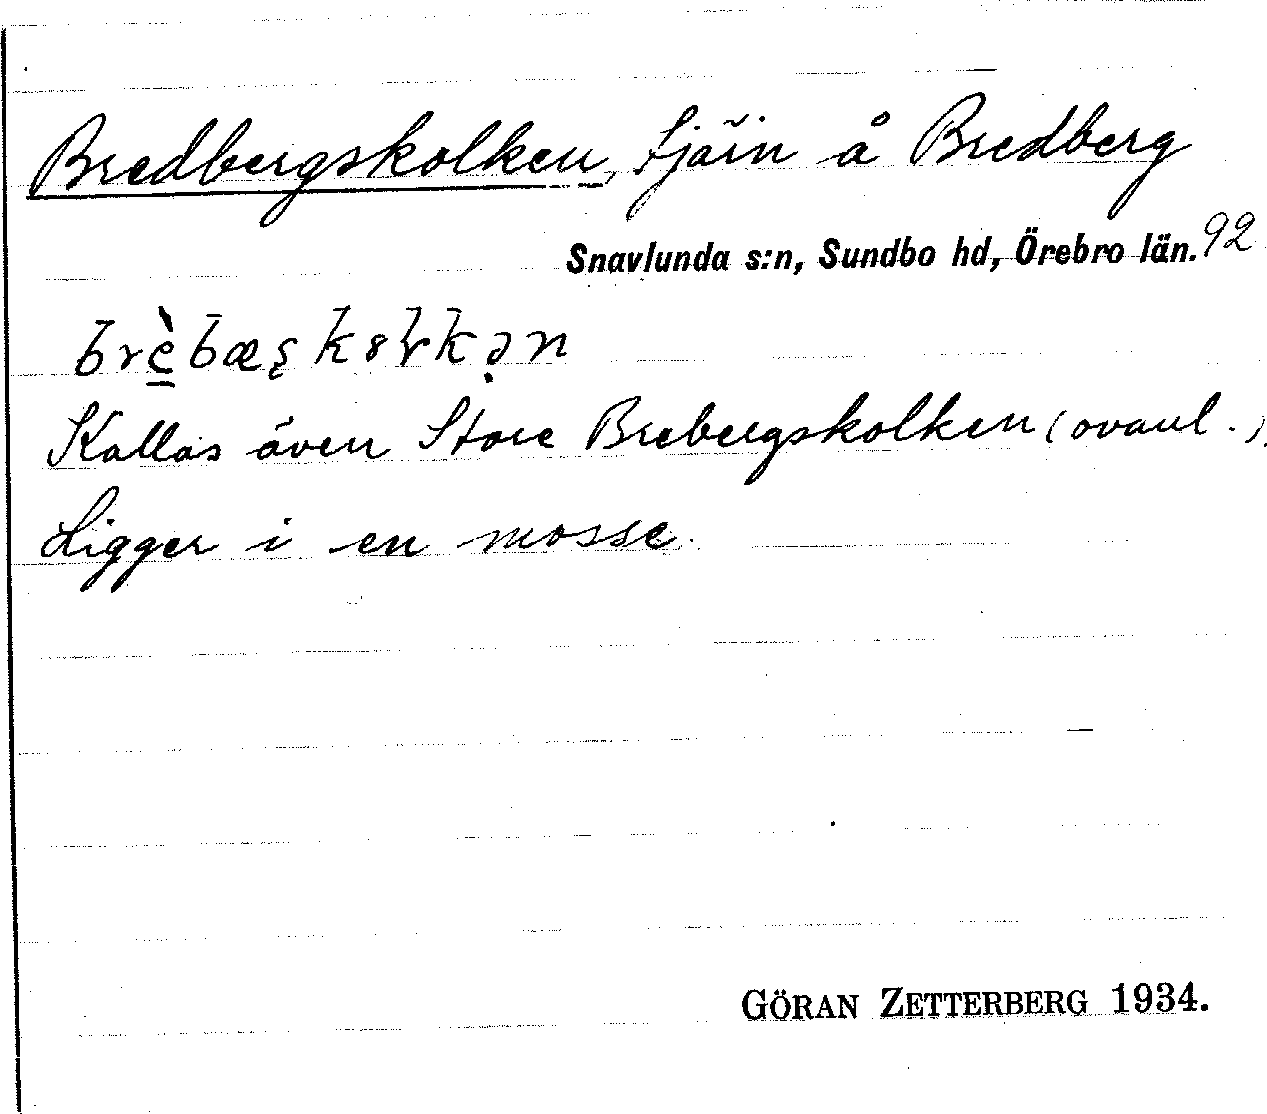 Bredbergskolken, tjärn å Bredberg
Snavlunda s:n, Sundbo hd, Örebro län. 92
Kallas även Store Brebergskolken (ovanl.).
Ligger i en mosse.
GÖRAN ZETTERBERG 1934.